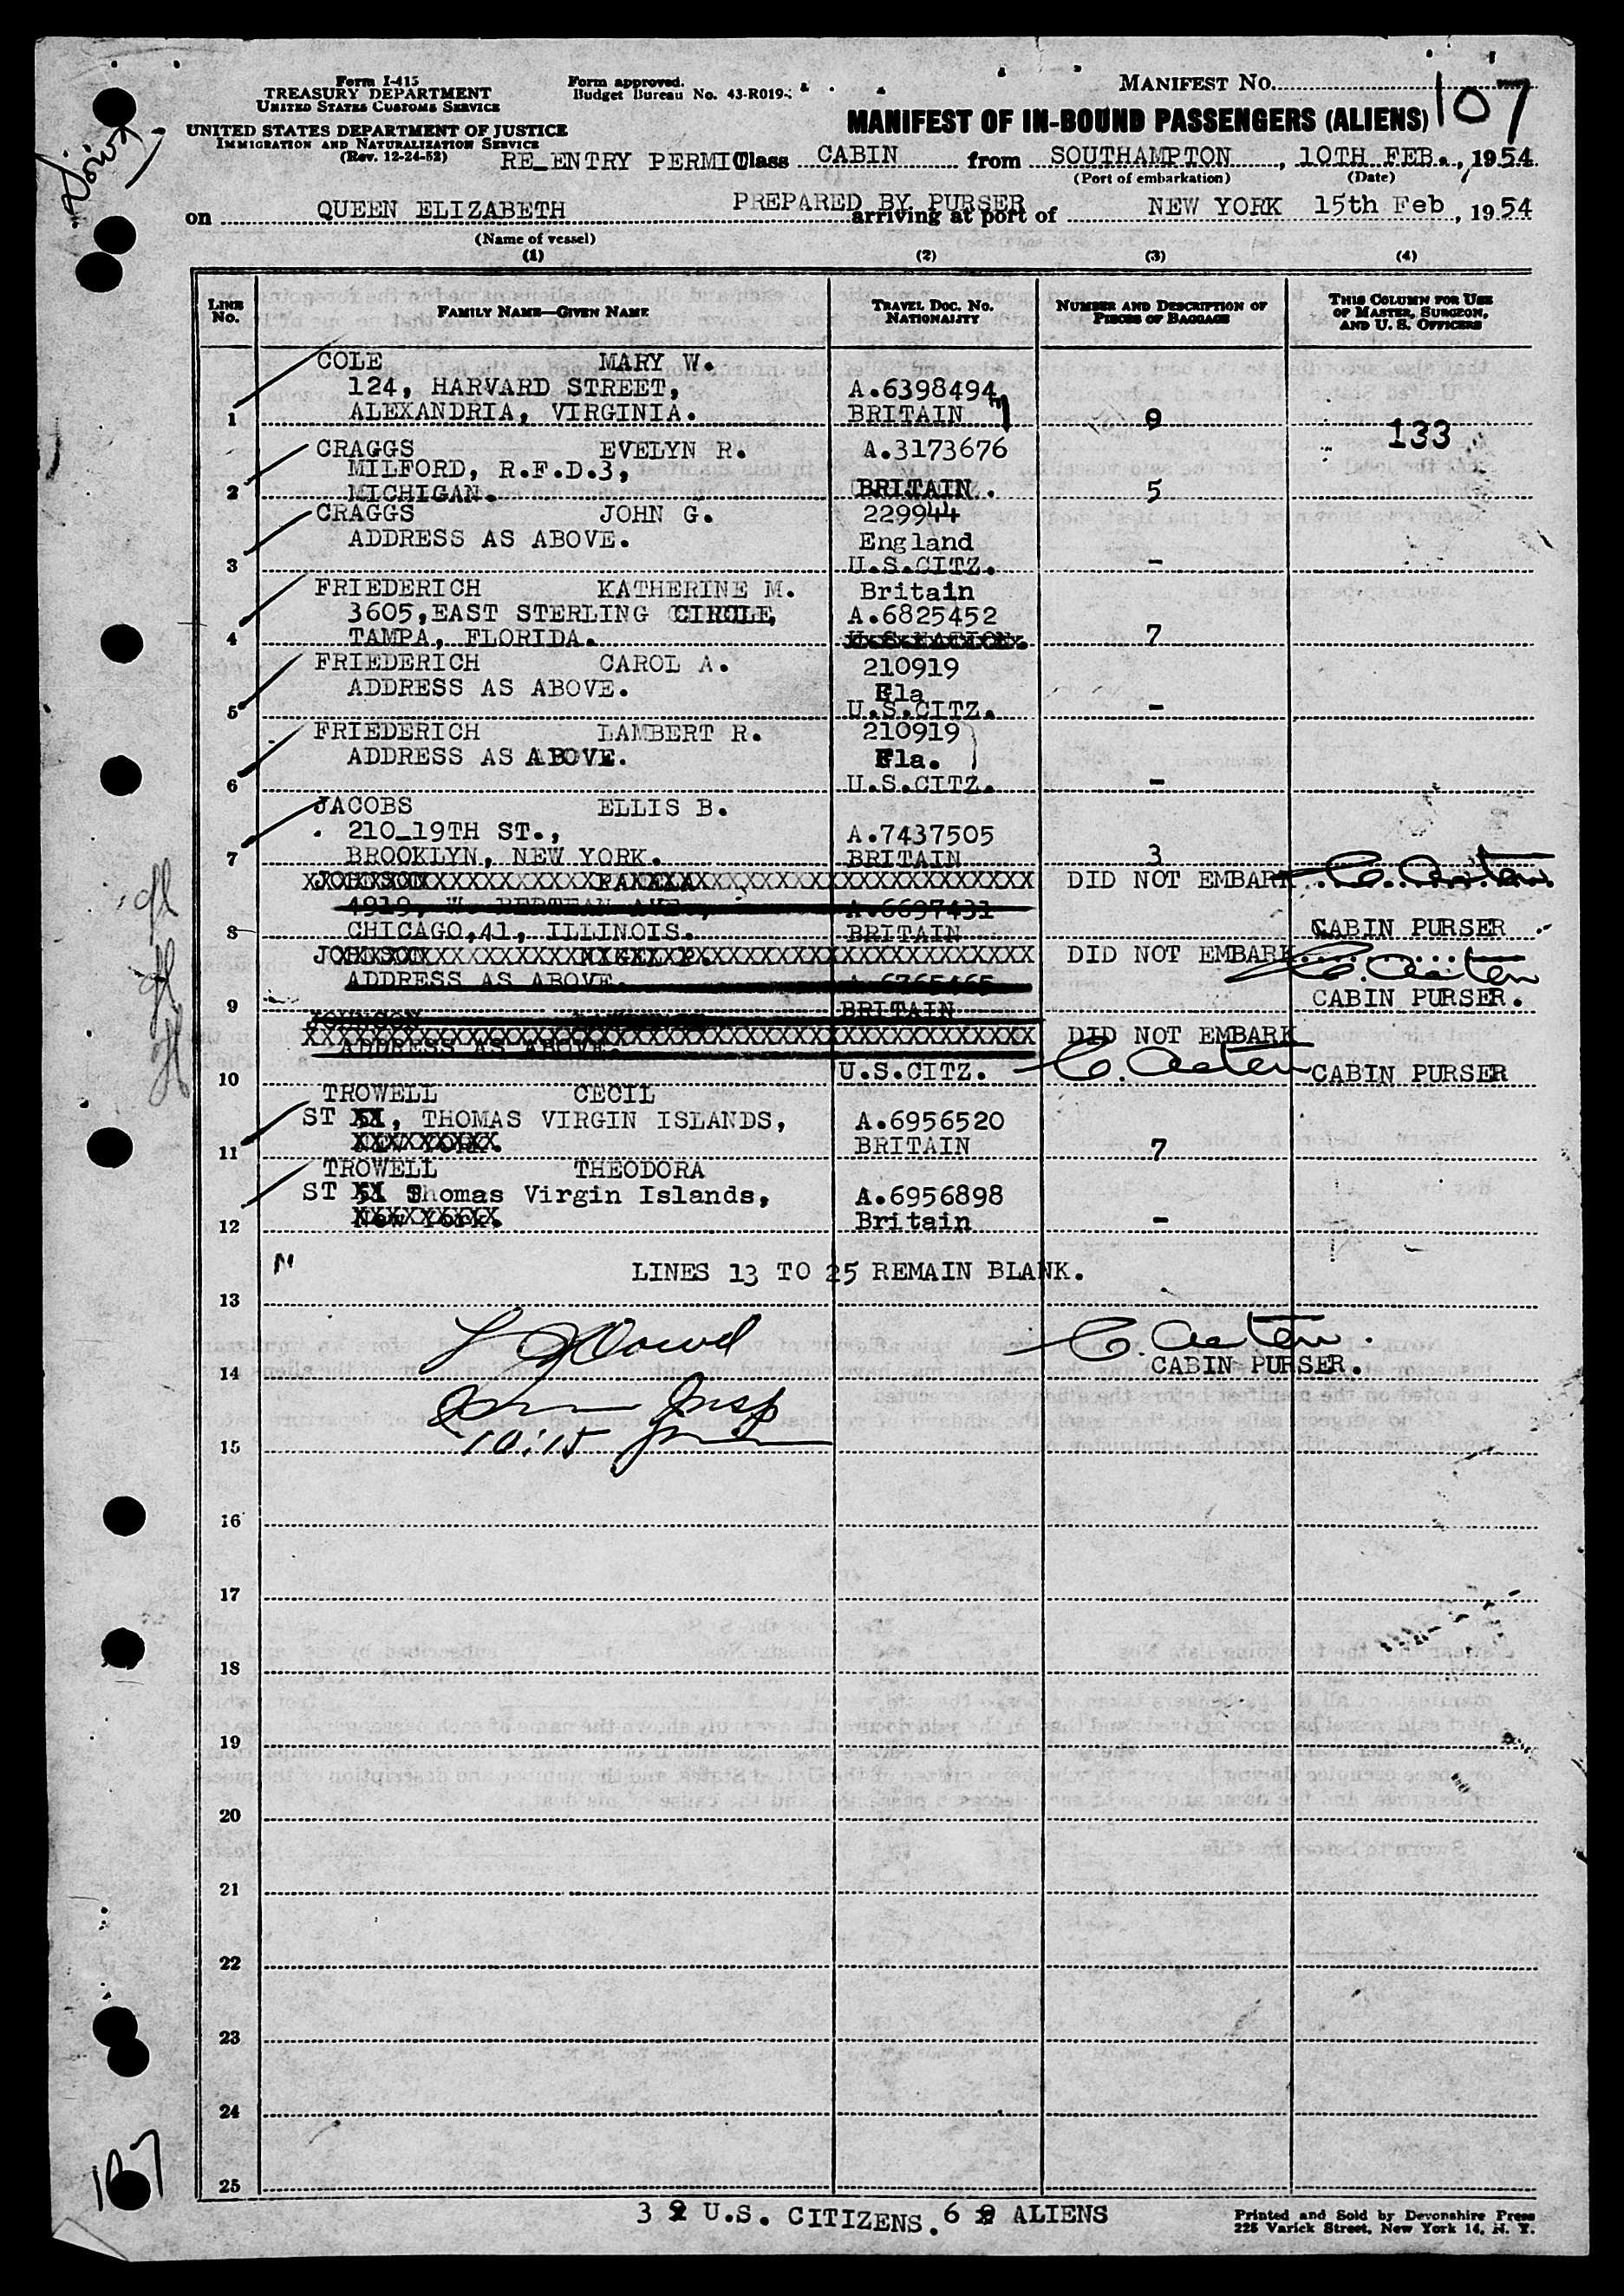 Form I-415
TREASURY DEPARTMENT
UNITED STATES CUSTOMS SERVICE
Form approved.
Budget Bureau No. 43-R019-
MANIFEST NO. 107
UNITED STATES DEPARTMENT OF JUSTICE
IMMIGRATION AND NATURALIZATION SERVICE
(Rev. 12-24-52)
MANIFEST OF IN-BOUND PASSENGERS (ALIENS)
RE_ENTRY PERMIT Class CABIN from SOUTHAMPTON, 10TH FEB., 1954
(Port of embarkation) (Date)
PREPARED BY PURSER
on QUEEN ELIZABETH arriving at port of NEW YORK 15th Feb, 1954
(Name of vessel)
(1) (2) (3) (4)
LINE NO. FAMILY NAME—GIVEN NAME TRAVEL DOC. NO. NATIONALITY NUMBER AND DESCRIPTION OF PIECES OF BAGGAGE THIS COLUMN FOR USE OF MASTER, SURGEON, AND U. S. OFFICERS
COLE MARY W.
124, HARVARD STREET, A.6398494
1 ALEXANDRIA, VIRGINIA. BRITAIN 133
CRAGGS EVELYN R. A.3173676
MILFORD, R.F.D.3,
2 MICHIGAN. BRITAIN. 5
CRAGGS JOHN G. 229944
ADDRESS AS ABOVE. England
3 U.S.CITZ. -
FRIEDERICH KATHERINE M. Britain
3605,EAST STERLING CIRCLE, A.6825452
4 TAMPA, FLORIDA. 7
FRIEDERICH CAROL A. 210919
ADDRESS AS ABOVE. Fla
5 U.S.CITZ. -
FRIEDERICH LAMBERT R. 210919
ADDRESS AS ABOVE. Fla.
6 U.S.CITZ. -
JACOBS ELLIS B.
210_19TH ST., A.7437505
7 BROOKLYN, NEW YORK. BRITAIN 3
JOHNSON PAMELA DID NOT EMBARK
A.6697431
8 CHICAGO,41, ILLINOIS. BRITAIN CABIN PURSER
JOHNSON NIGEL P. DID NOT EMBARK
ADDRESS AS ABOVE.
9 BRITAIN CABIN PURSER.
JOHNSON DID NOT EMBARK
ADDRESS AS ABOVE.
10 U.S.CITZ. CABIN PURSER
TROWELL CECIL
ST THOMAS VIRGIN ISLANDS, A.6956520
11 BRITAIN 7
TROWELL THEODORA
ST Thomas Virgin Islands, A.6956898
12 New York. Britain -
LINES 13 TO 25 REMAIN BLANK.
13
14 CABIN PURSER.
Insp
15 10:15
16
17
18
19
20
21
22
23
24
25
107
3 U.S. CITIZENS. 6 ALIENS
Printed and Sold by Devonshire Press
225 Varick Street, New York 14, N. Y.